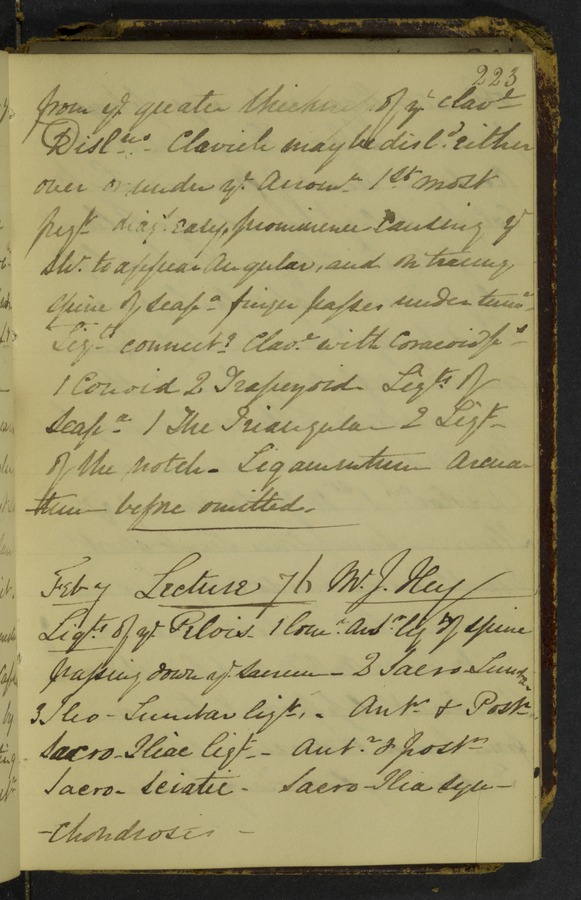 223
from yᵉ greater thickness of yᵉ clavᵉ
Dislⁿˢ Clavicle may be dislᵈ either
over or under yᵉ Acromⁿ 1st most
freqᵗ diagˢ easy, prominence causing yᵉ
shʳ to appear angular, and on tracing
spine of scapᵃ finger passes under
Ligᵗˢ connectᵍ Clavᵉ with Coracoid pˢ
1 Conoid 2 Trapezoid Ligᵗˢ of
Scapᵃ 1 The Triangular 2 Ligᵗ
of the notch - Ligamentum Arcua-
tum before omitted.
Feby 7 Lecture 76 Mr. J. Hey
Ligᵗˢ of yᵉ Pelvis 1 Comⁿ Antʳ lig of spine
passing down yᵉ sacrum - 2 Sacro-Lumbʳ
3 Ileo-Lumbar ligᵗˢ - Antʳ & Postʳ
Sacro-Iliac ligᵗ - Antʳ & postʳ
Sacro-sciatic - Sacro-Ilia syn-
-chondrosis -